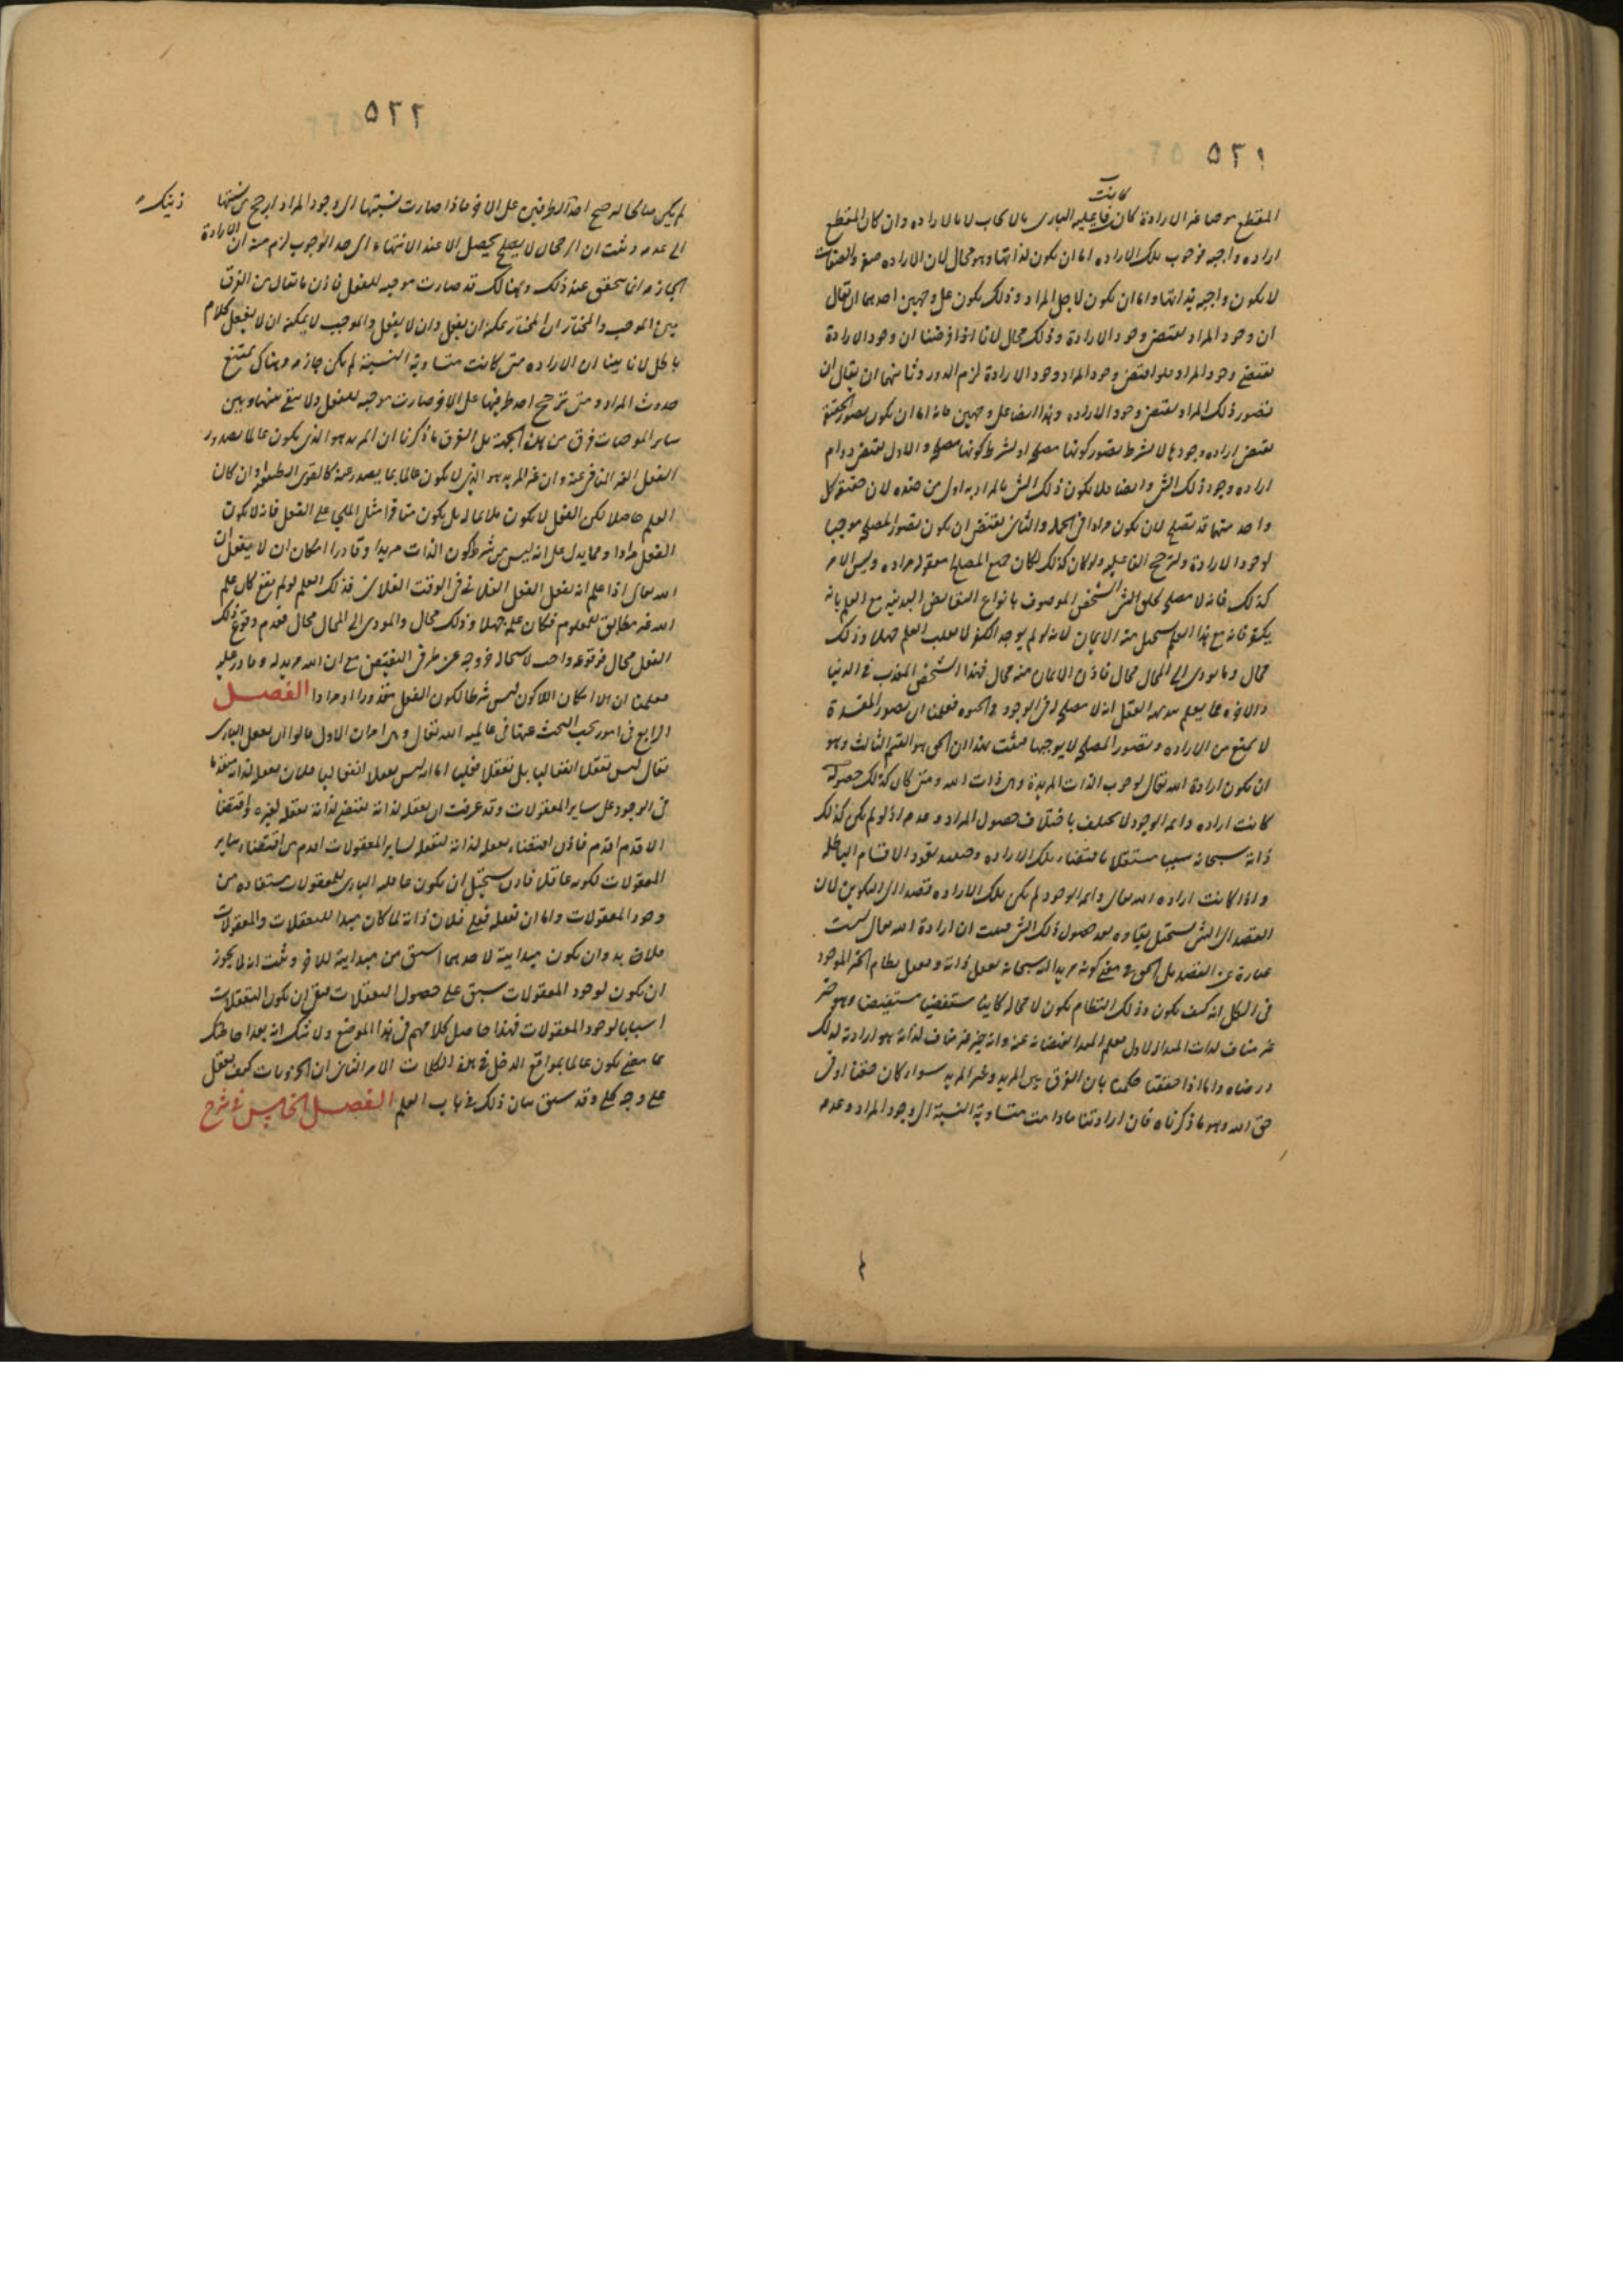 ٥٢١
كانت
المقطع موجبا غير الارادة كان فاعلية البارى بالايجاب لا بالارادة وان كان المقطع
ارادة واجبة فوجوب تلك الارادة اما ان يكون لذاتها وهو محال لان الارادة صفة والصفات
لا يكون واجبة بذاتها واما ان يكون لاجل المراد وذلك يكون على وجهين احدهما ان يقال
ان وجود المراد يقتضى وجود الارادة وذلك محال لانا اذا فرضنا ان وجود الارادة
يقتضى وجود المراد فلو اقتضى وجود المراد وجود الارادة لزم الدور وثانيهما ان يقال ان
تصور ذلك المراد يقتضى وجود الارادة وهذا ايضا على وجهين فانه اما ان يكون تصور الحقيقة
يقتضى ارادة وجودها لا بشرط تصور كونها مصلحة او بشرط كونها مصلحة والاول يقتضى دوام
ارادة وجود ذلك الشى وايضا فلا يكون ذلك الشى بالمراد به اولى من ضده لان حقيقة كل
واحد منهما قد يصلح لان يكون مرادا فى الجملة والثانى يقتضى ان يكون تصور المصلحة موجبا
لوجود الارادة ولترجح الفاعلية ولو كان كذلك لكان جميع المصالح المعقولة مراده وليس الامر
كذلك فانه لا مصلحة لخلق الشخص الموصوف بانواع النقايص البدنية مع العلم بانه
يكفر فانه مع هذا العلم يستحيل منه الايمان لانه لو لم يوجد الكفر لانقلب العلم جهلا وذلك
محال وما يودى الى المحال محال فاذن الايمان منه محال فهذا الشخص المعذب فى الدنيا
والاخرة مما يعلم ببديهة العقل انه لا مصلحة له فى الوجود والحيوة فعلمنا ان تصور المفسدة
لا يمنع من الارادة وتصور المصلحة لا يوجبها فثبت بهذا ان الحق هو القسم الثالث وهو
ان يكون ارادة الله تعالى لوجوب الذات المريدة وهى ذات الله ومتى كان كذلك حصوله
كانت ارادة دايمة الوجود لا يختلف باختلاف حصول المراد وعدمه اذ لو لم يكن كذلك
ذاته سبحانه سببا مستقلا باقتضاء تلك الارادة وحينئذ يعود الاقسام الباطلة
واذا كانت ارادة الله تعالى دايمة الوجود لم يكن تلك الارادة قصدا الى التكوين لان
القصد الى الشى يستحيل بقاؤه بعد حصول ذلك الشى فثبت ان ارادة الله تعالى ليست
عبارة عن القصد بل الحق فى معنى كونه مريدا انه سبحانه يعقل ذاته ويعقل نظام الخير الموجود
فى الكل انه كيف يكون وذلك النظام يكون لا محالة كاينا مستفيضا وهو خير
غير مناف لذات المبدا الاول فعلم المبدا بفيضانه عنه وانه خير غير مناف لذاته هو ارادته لذلك
ورضاه واما اذا حققنا حكمنا بان الفرق بين المريد وغير المريد سواء كان حقنا او فى
حق الله وهو ما ذكرناه فان ارادتنا ما دامت متساوية النسبة الى وجود المراد وعدمه
٥٢٢
لم يكن صالحا لترجيح احد الطرفين على الاخر فاذا صارت نسبتها الى وجود المراد ارجح من نسبتها
الى عدمه وثبت ان الرجحان لا يصلح يحصل الا عند الانتهاء الى حد الوجوب لزم منه ان الارادة
الجازمة انما يتحقق عند ذلك وهنالك قد صارت موجبة للفعل فاذن ما يقال من الفرق
بين الموجب والمختار ان المختار يمكنه ان يفعل وان لا يفعل والموجب لا يمكنه ان لا يفعل كلام
باطل لانا بينا ان الارادة متى كانت متساوية النسبة لم يكن جازمة وهناك يمتنع
حدوث المراد ومتى ترجح احد طرفيها على الاخر صارت موجبة للفعل ولا يبقى بينها وبين
ساير الموجبات فرق من هذه الجهة بل الفرق ما ذكرنا ان المريد هو الذى يكون عالما بصدور
الفعل الغير المنافى عنه وان غير المريد هو الذى لا يكون عالما بما يصدر عنه كالقوى الطبيعية وان كان
العلم حاصلا لكن الفعل لا يكون ملايما له بل يكون منافرا مثل الملجى على الفعل فانه لا يكون
الفعل مرادا ومما يدل على انه ليس من شرط كون الذات مريدا وقادرا امكان ان لا يفعل ان
الله تعالى اذا علم انه يفعل الفعل الفلانى فى الوقت الفلانى فذلك الفعل لو لم يقع كان علم
الله غير مطابق للمعلوم فكان علمه جهلا وذلك محال والمودى الى المحال محال فعدم وقوع ذلك
الفعل محال فوقوعه واجب لاستحالة خروجه عن طرفى النقيض مع ان الله مريد له وقادر عليه
فعلمنا ان امكان اللاكون ليس شرطا لكون الفعل مقدورا او مرادا الفصل
الرابع فى امور يجب البحث عنها فى عالمية الله تعالى وهى امران الاول قالوا ان تعقل البارى
تعالى ليس تعقلا انفعاليا بل تعقلا فعليا اما انه ليس تعقلا انفعاليا فلان تعقله لذاته متقدما
فى الوجود على ساير المعقولات وقد عرفت ان تعقله لذاته يقتضى لذاته تعقله لغيره واقتضا
الاقدم اقدم فاذن اقتضاء تعقله لذاته لتعقله لساير المعقولات اقدم من اقتضاء ساير
المعقولات لكونه عاقلا فاذن يستحيل ان يكون عاقلية البارى للمعقولات مستفادة من
وجود المعقولات واما ان تعقله فعلى فلان ذاته لما كان مبدا للتعقلات والمعقولات
فلا بد وان يكون مبدايية لاحدهما اسبق من مبدايية للاخر وثبت انه لا يجوز
ان يكون لوجود المعقولات سبق على حصول التعقلات فبقى ان يكون التعقلات
اسبابا لوجود المعقولات فهذا حاصل كلامهم فى هذا الموضع ولا شك انه بعد احاطتك
بما مضى يكون عالما بمواقع الدخل فى هذه الكلمات الامر الثانى ان الجزويات كيف يعقل
على وجه كلى وقد سبق بيان ذلك فى باب العلم الفصل الخامس فى شرح